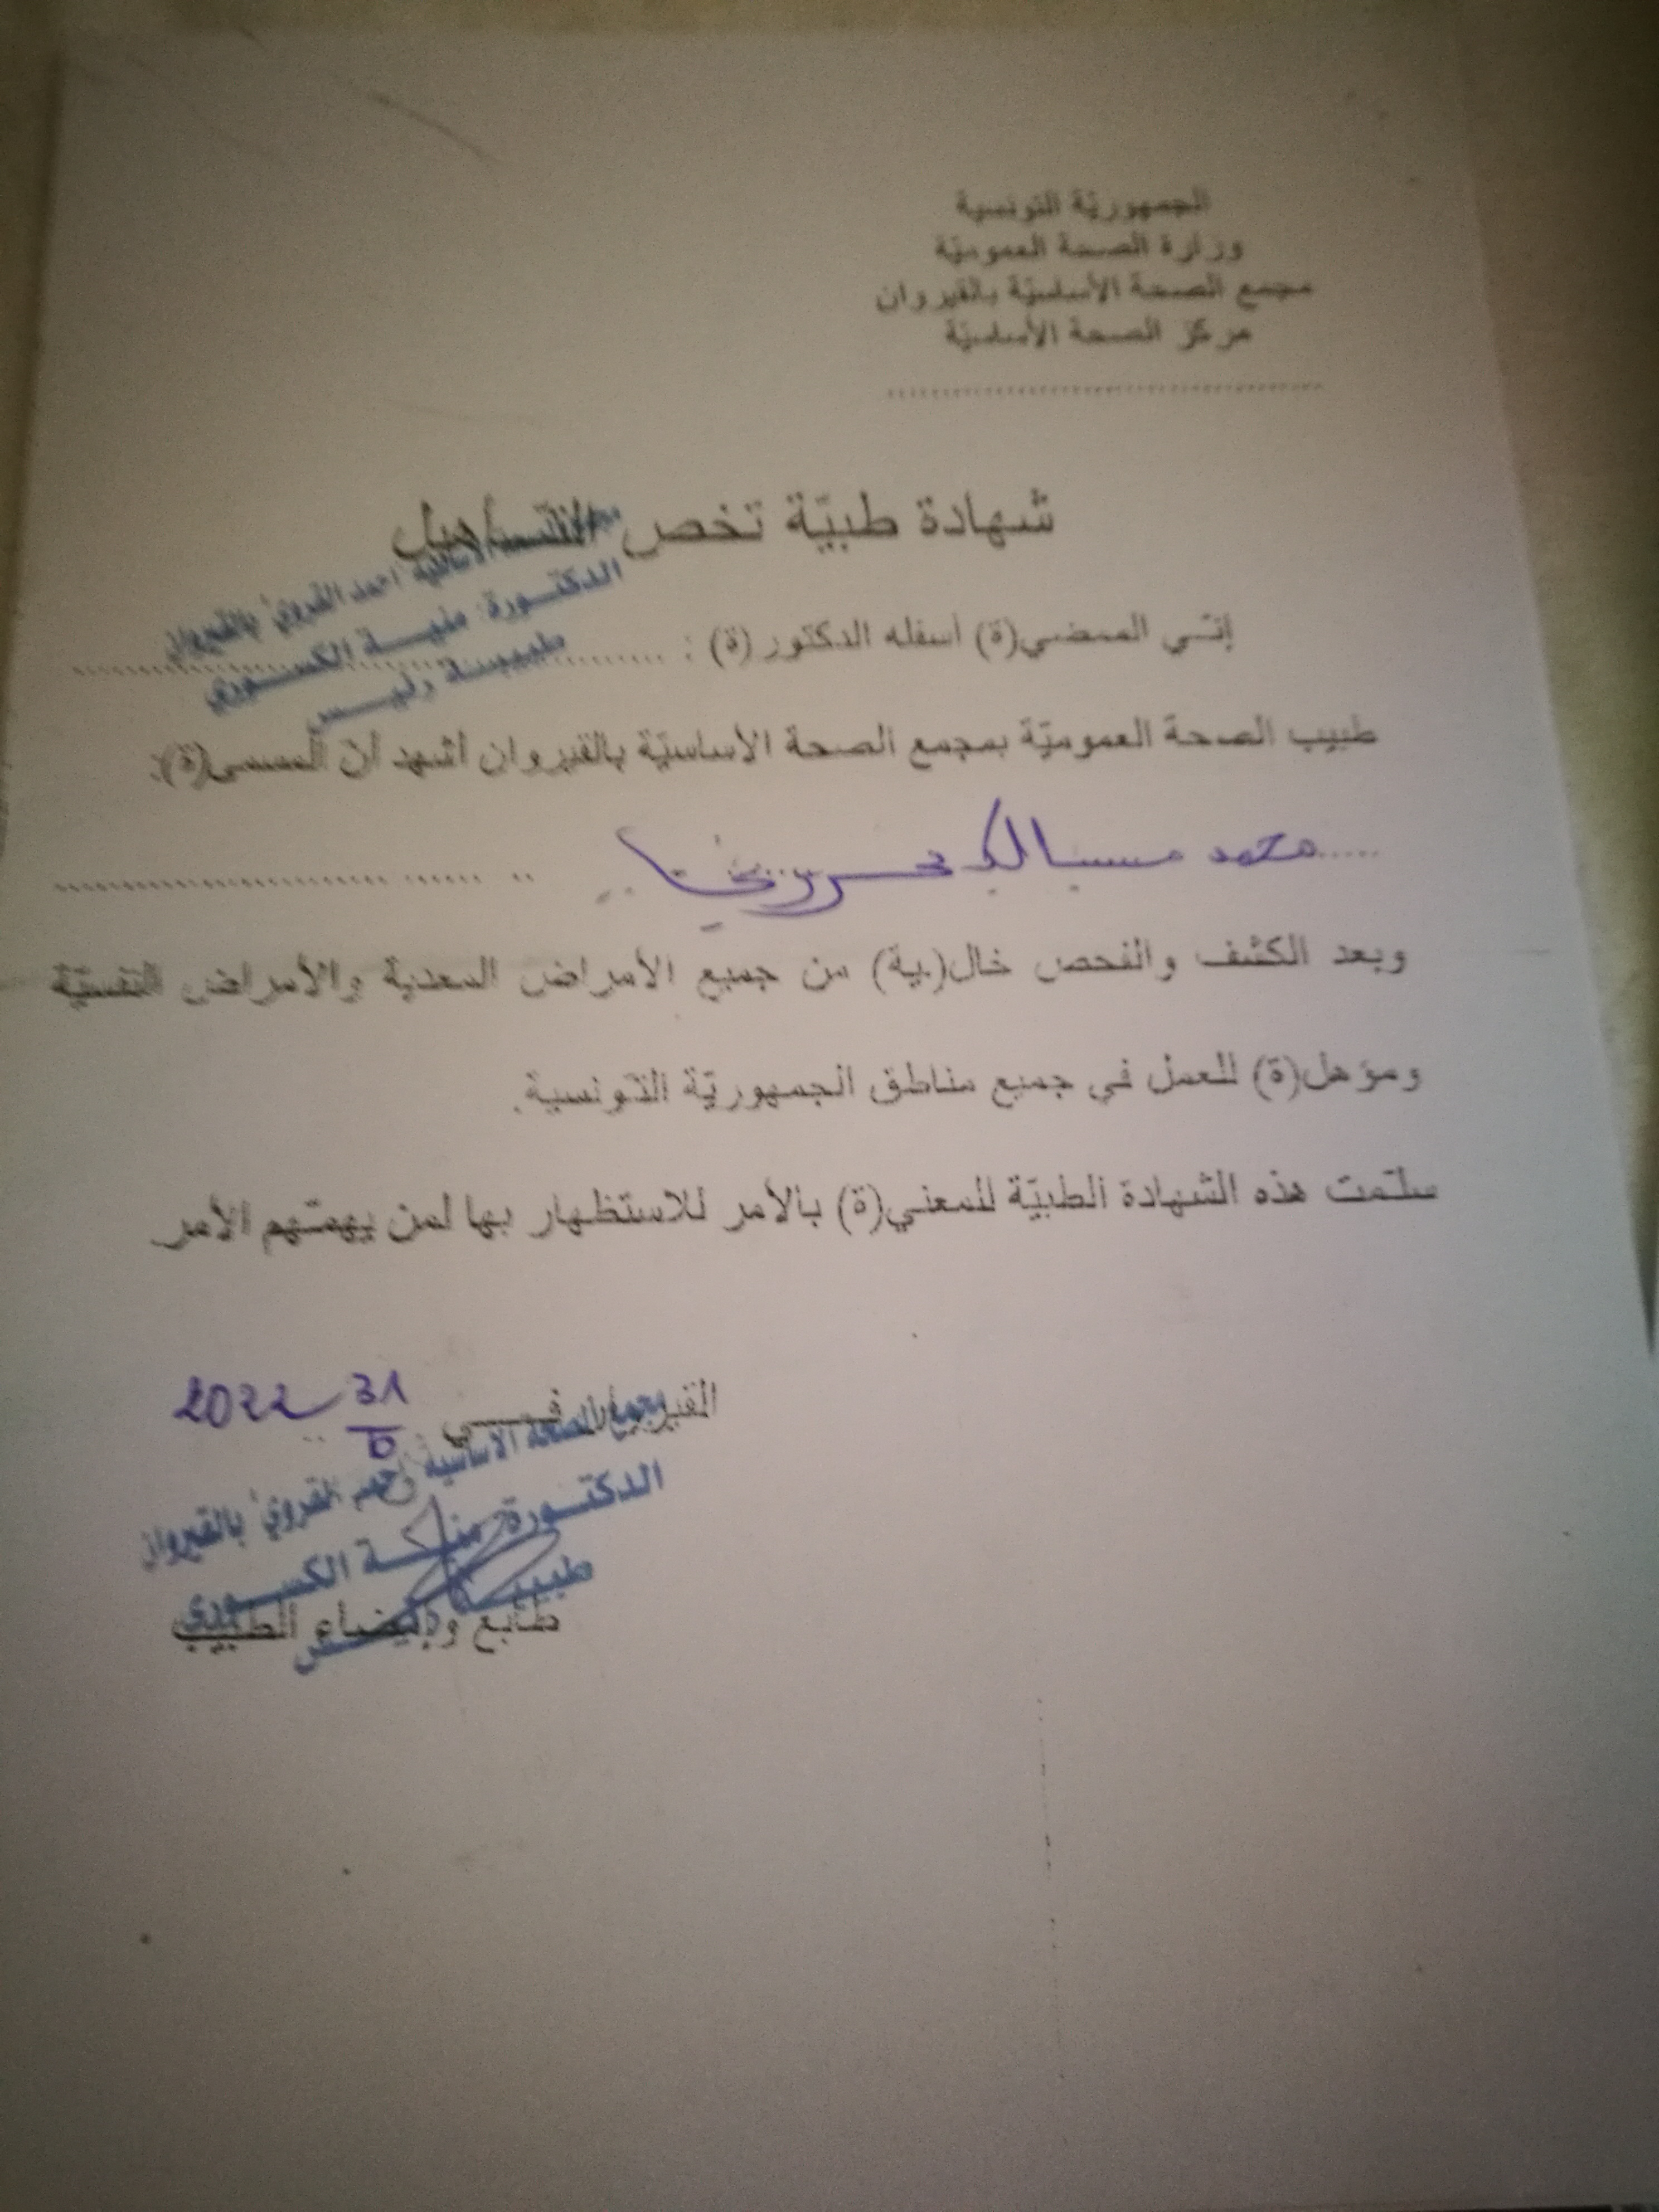 الجمهوريّة التونسية
وزارة الصحة العموميّة
مجمع الصحة الأساسيّة بالقيروان
مركز الصحة الأساسيّة
شهادة طبيّة تخص التأهيل
الأساسية أحمد القروي بالقيروان
الدكتورة منية الكسوري
طبيبة رئيس
إنّي الممضي(ة) أسفله الدكتور(ة) :
طبيب الصحة العموميّة بمجمع الصحة الأساسيّة بالقيروان أشهد أن المسمى(ة):
محمد
وبعد الكشف والفحص خال(ية) من جميع الأمراض المعدية والأمراض النفسيّة
ومؤهل(ة) للعمل في جميع مناطق الجمهوريّة التّونسية.
سلّمت هذه الشهادة الطبيّة للمعني(ة) بالأمر للاستظهار بها لمن يهمّهم الأمر
القيروان في 31 2022
مجمع الصحة الأساسية أحمد القروي بالقيروان
الدكتورة منية الكسوري
طبيبة
طابع وإمضاء الطبيب